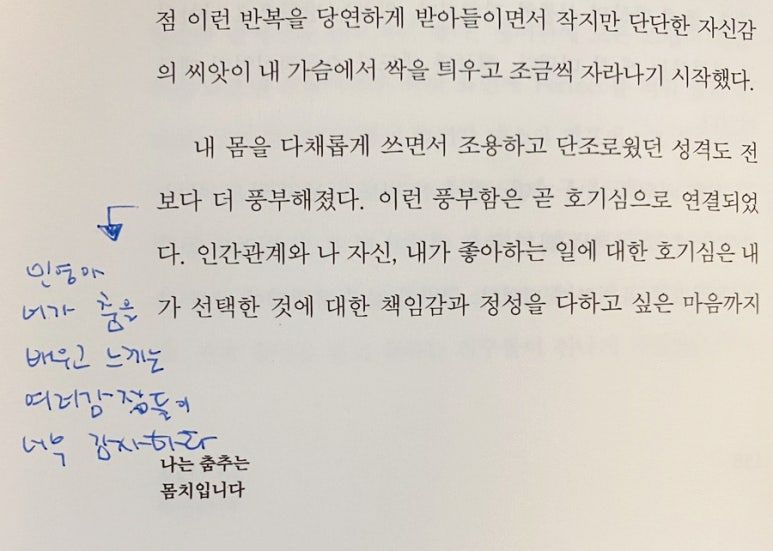 점 이런 반복을 당연하게 받아들이면서 작지만 단단한 자신감
의 씨앗이 내 가슴에서 싹을 틔우고 조금씩 자라나기 시작했다.
내 몸을 다채롭게 쓰면서 조용하고 단조로웠던 성격도 전
보다 더 풍부해졌다. 이런 풍부함은 곧 호기심으로 연결되었
다. 인간관계와 나 자신, 내가 좋아하는 일에 대한 호기심은 내
가 선택한 것에 대한 책임감과 정성을 다하고 싶은 마음까지
민영아
너가 춤을
배우고 느끼는
여러감정들이
너무 감사하다
나는 춤추는
몸치입니다